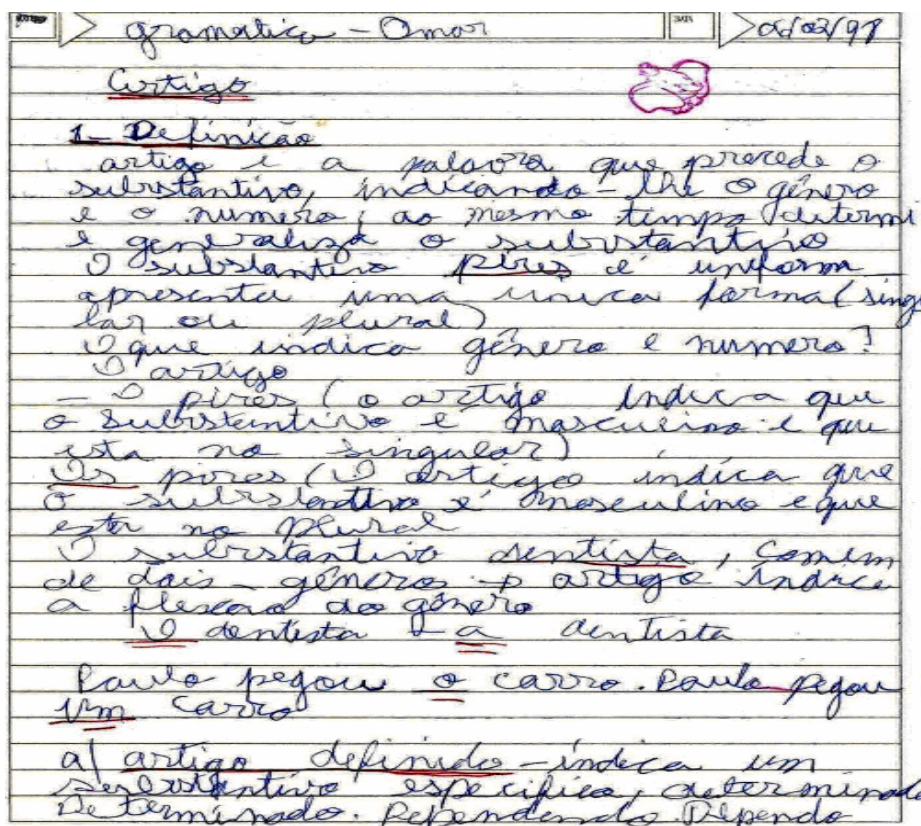 gramatica - Omar DATA 06/03/98
Artigo
1- Definição
artigo é a palavra que precede o
substantivo, indicando-lhe o gênero
e o numero; ao mesmo tempo determi
e generaliza o substantivo
O substantivo pires é uniform
apresenta uma unica forma (singu
lar ou plural)
O que indica gênero e numero?
O artigo
- O pires (o artigo indica que
o substantivo é masculino e que
esta no singular)
Os pires (O artigo indica que
o substantivo é masculino e que
esta no plural
O substantivo dentista, comum
de dois gêneros artigo indica
a flexão do gênero
O dentista - a dentista
Paulo pegou o carro. Paulo pegou
um carro
a) artigo definido - indica um
substantivo especifico, determinado
Determinado. Dependendo Depende